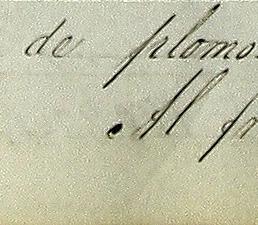 de plomo
Al fo